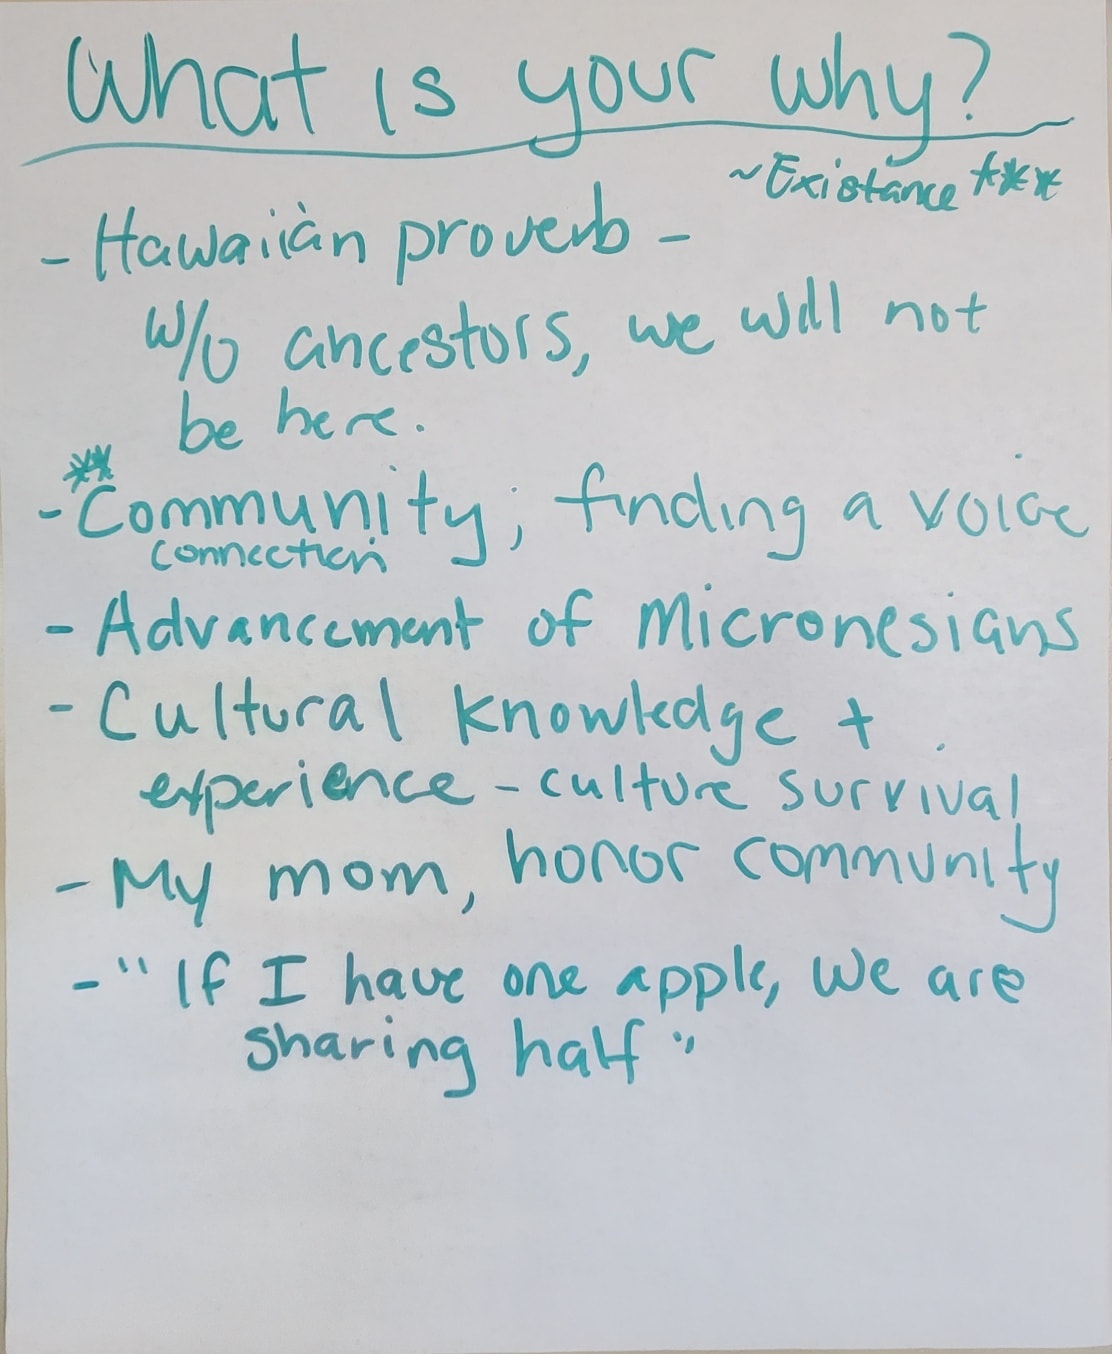 What is your why?
~Existance ***
- Hawaiian proverb -
w/o ancestors, we will not
be here.
**
- Community; finding a voice
connection
- Advancement of Micronesians
- Cultural knowledge +
experience - culture survival
- My mom, honor community
- "If I have one apple, we are
sharing half"